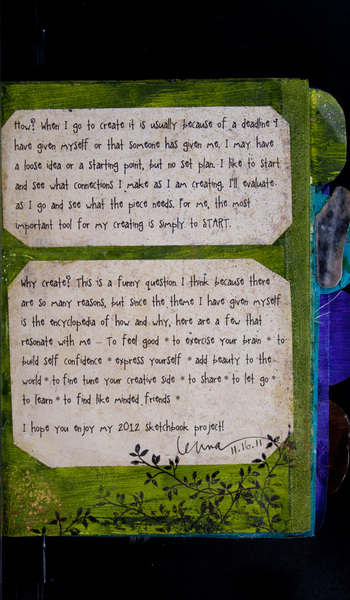 How? When I go to create it is usually because of a deadline I
have given myself or that someone has given me. I may have
a loose idea or a starting point, but no set plan. I like to start
and see what connections I make as I am creating. I'll evaluate
as I go and see what the piece needs. For me, the most
important tool for my creating is simply to START.
Why create? This is a funny question I think because there
are so many reasons, but since the theme I have given myself
is the encyclopedia of how and why, here are a few that
resonate with me - To feel good * to exercise your brain * to
build self confidence * express yourself * add beauty to the
world * to fine tune your creative side * to share * to let go *
to learn * to find like minded friends *
I hope you enjoy my 2012 sketchbook project!
11.16.11